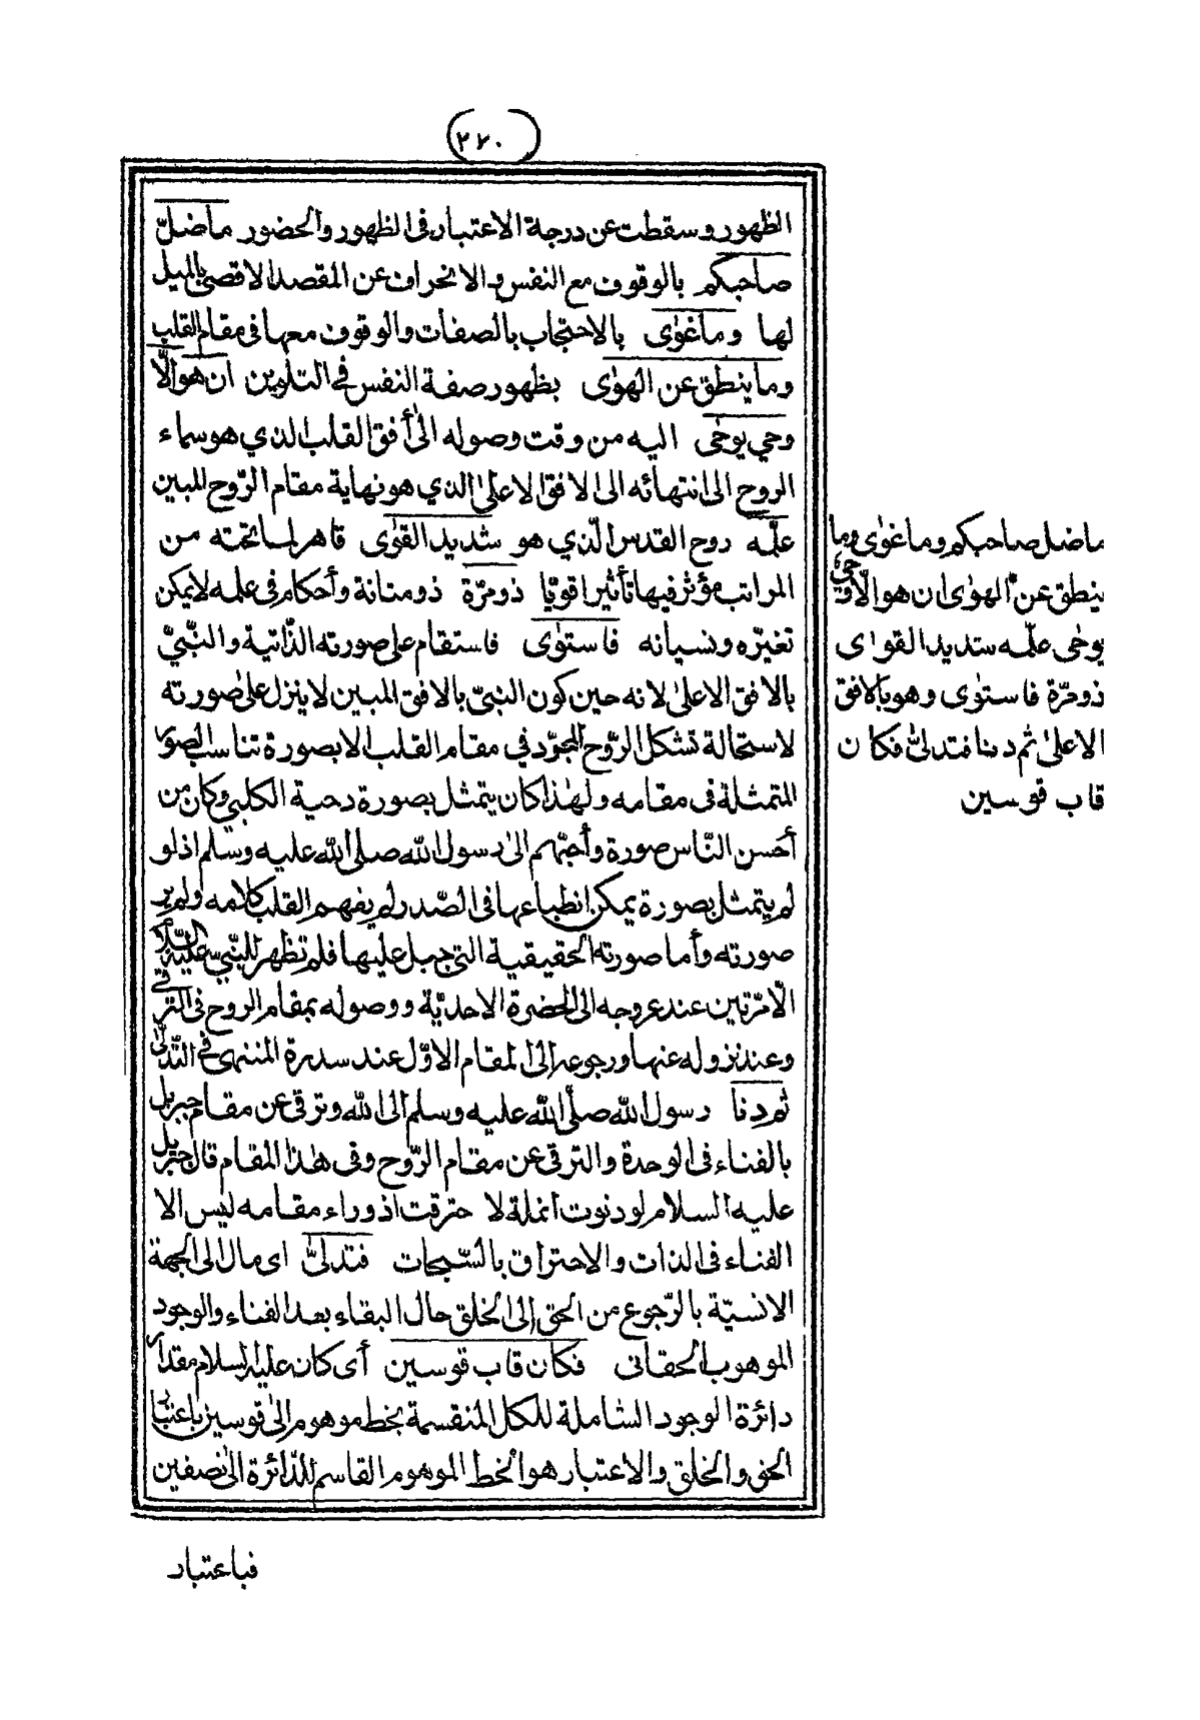 (٢٧٠)
الظهور وسقطت عن درجة الاعتبار فى الظهور والحضور ماضلّ
صاحبكم بالوقوف مع النفس والانحراف عن المقصد الاقصى بالميل
لها وماغوٰى بالاحتجاب بالصفات والوقوف معها فى مقام القلب
وما ينطق عن الهوٰى بظهور صفة النفس فى التلوين ان هو الّا
وحي يوحٰى اليه من وقت وصوله الىٰ أفق القلب الذي هو سماء
الروح الى انتهائه الى الافق الاعلىٰ الذي هو نهاية مقام الرّوح المبين
علّمه روح القدس الّذي هو شديد القوٰى قاهر لما تحته من
المراتب مؤثر فيها تأثيرا قويّا ذومرّة ذو متانة وأحكام فى علمه لايمكن
تغيّره ونسيانه فاستوٰى فاستقام على صورته الذّاتية والنّبيّ
بالافق الاعلىٰ لانه حين كون النبيّ بالافق المبين لاينزل علىٰ صورته
لاستحالة تشكل الرّوح المجرّد في مقام القلب الا بصورة تناسب الصور
المتمثلة فى مقامه ولهٰذا كان يتمثل بصورة دحية الكلبي وكان من
أحسن النّاس صورة وأحبّهم الىٰ رسول الله صلى الله عليه وسلم اذ لو
لم يتمثل بصورة يمكن انطباعها فى الصّدر لم يفهم القلب كلامه ولم ير
صورته وأما صورته الحقيقية التى جبل عليها فلم تظهر للنّبيّ عليه السّلام
الّا مرّتين عند عروجه الى الحضرة الاحديّة ووصوله بمقام الروح فى الترقي
وعند نزوله عنها ورجوعه الى المقام الاوّل عند سدرة المنتهى فى التّدلّى
ثم دنا رسول الله صلّى الله عليه وسلم الى الله وترقى عن مقام جبريل
بالفناء فى الوحدة والترقى عن مقام الرّوح وفى هٰذا المقام قال جبريل
عليه السلام لو دنوت انملة لا حترقت اذ وراء مقامه ليس الا
الفناء فى الذات والاحتراق بالسّبحات فتدلّىٰ اى مال الى الجهة
الانسيّة بالرّجوع من الحق إلى الخلق حال البقاء بعد الفناء والوجود
الموهوب الحقانى فكان قاب قوسين أى كان عليه السلام مقدار
دائرة الوجود الشاملة للكل المنقسمة بخط موهوم الىٰ قوسين باعتبار
الحق والخلق والاعتبار هو الخط الموهوم القاسم للدّائرة الى نصفين
فباعتبار
ماضل صاحبكم وماغوٰى وما
ينطق عن الهوٰى ان هو الّا وحيٌ
يوحٰى علّمه شديد القوٰى
ذومرّة فاستوٰى وهو بالافق
الاعلىٰ ثم دنا فتدلّىٰ فكان
قاب قوسين